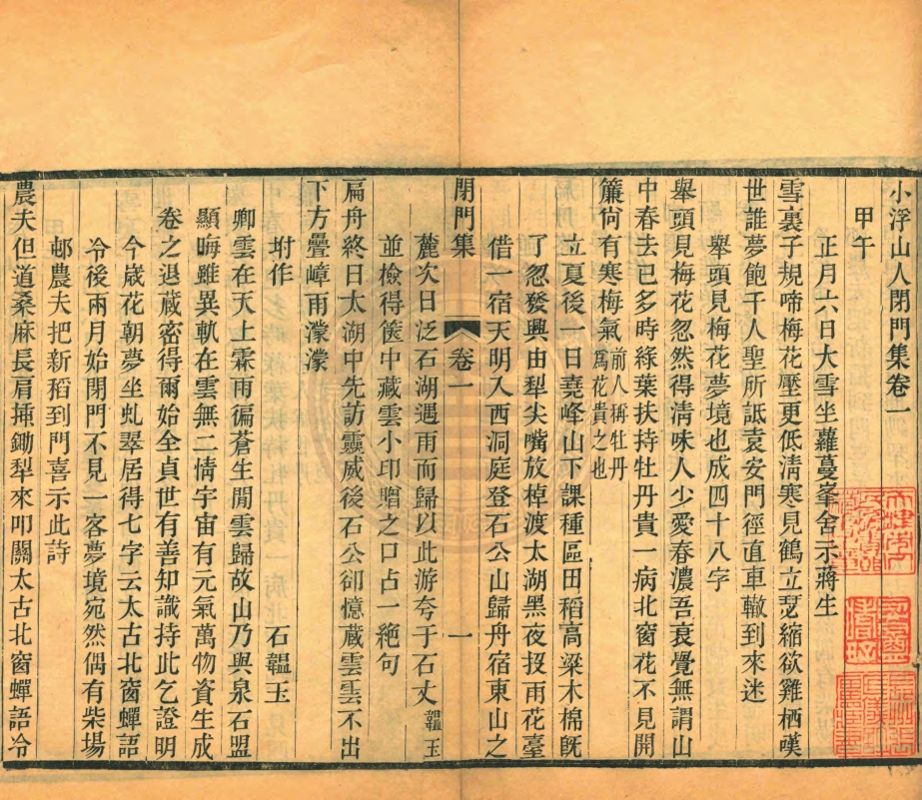 小浮山人閉門集卷一
甲午
正月六日大雪坐蘿蔓峯舍示蔣生
雪裏子規啼梅花壓更低淸寒見鶴立瑟縮欲雞栖嘆
世誰夢飽千人聖所詆袁安門徑直車轍到來迷
舉頭見梅花夢境也成四十八字
舉頭見梅花忽然得淸味人少愛春濃吾衰覺無謂山
中春去已多時綠葉扶持牡丹貴一病北窗花不見開
簾尙有寒梅氣前人稱牡丹爲花貴之也
立夏後一日堯峰山下課種區田稻高粱木棉旣
了忽發興由犁尖嘴放棹渡太湖黑夜投雨花臺
借一宿天明入西洞庭登石公山歸舟宿東山之
閉門集 卷一 一
麓次日泛石湖遇雨而歸以此游夸于石丈韞玉
並檢得篋中藏雲小印贈之口占一絶句
扁舟終日太湖中先訪靈威後石公卻憶藏雲雲不出
下方疊嶂雨濛濛
坿作 石韞玉
卿雲在天上霖雨徧蒼生閒雲歸故山乃與泉石盟
顯晦雖異軌在雲無二情宇宙有元氣萬物資生成
卷之退藏密得爾始全貞世有善知識持此乞證明
今歲花朝夢坐虬翠居得七字云太古北窗蟬語
冷後兩月始閉門不見一客夢境宛然偶有柴場
邨農夫把新稻到門喜示此詩
農夫但道桑麻長肩揷鋤犁來叩關太古北窗蟬語冷